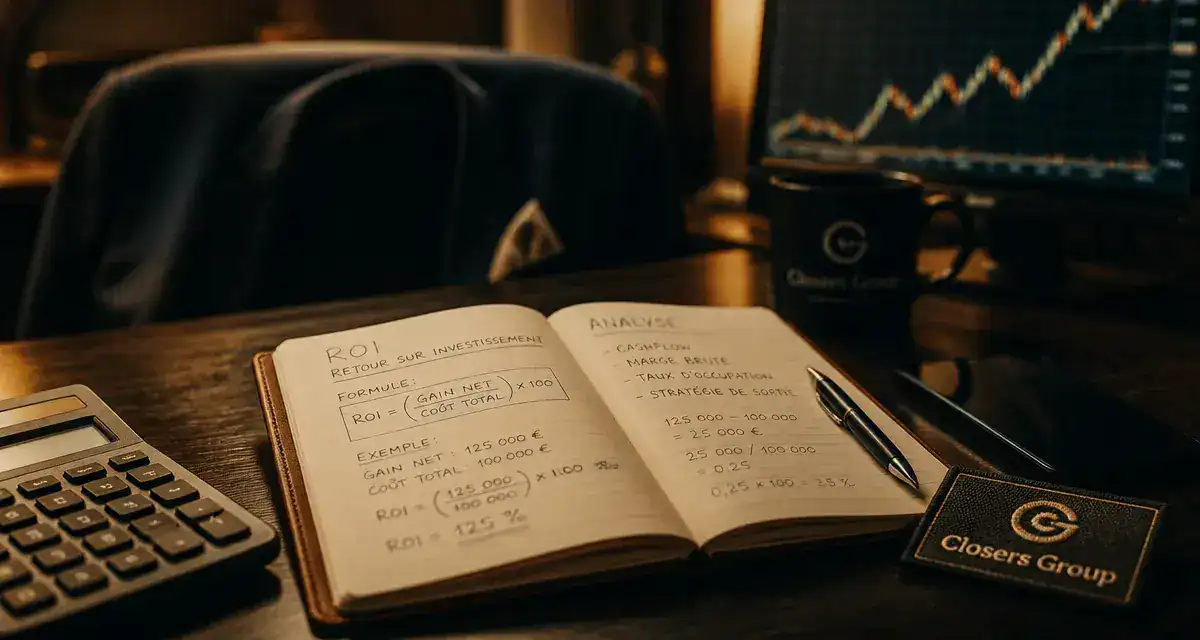 ROI
RETOUR SUR INVESTISSEMENT
FORMULE:
ROI = (GAIN NET / COÛT TOTAL) × 100
EXEMPLE:
GAIN NET : 125 000 €
COÛT TOTAL: 100 000 €
ROI = (125 000 / 100 000) × 100 %
ROI = 125 %
ANALYSE
- CASHFLOW
- MARGE BRUTE
- TAUX D'OCCUPATION
- STRATÉGIE DE SORTIE
125 000 – 100 000
= 25 000 €
25 000 / 100 000
= 0,25
0,25 × 100 = 25 %
Closers Group
Closers Group